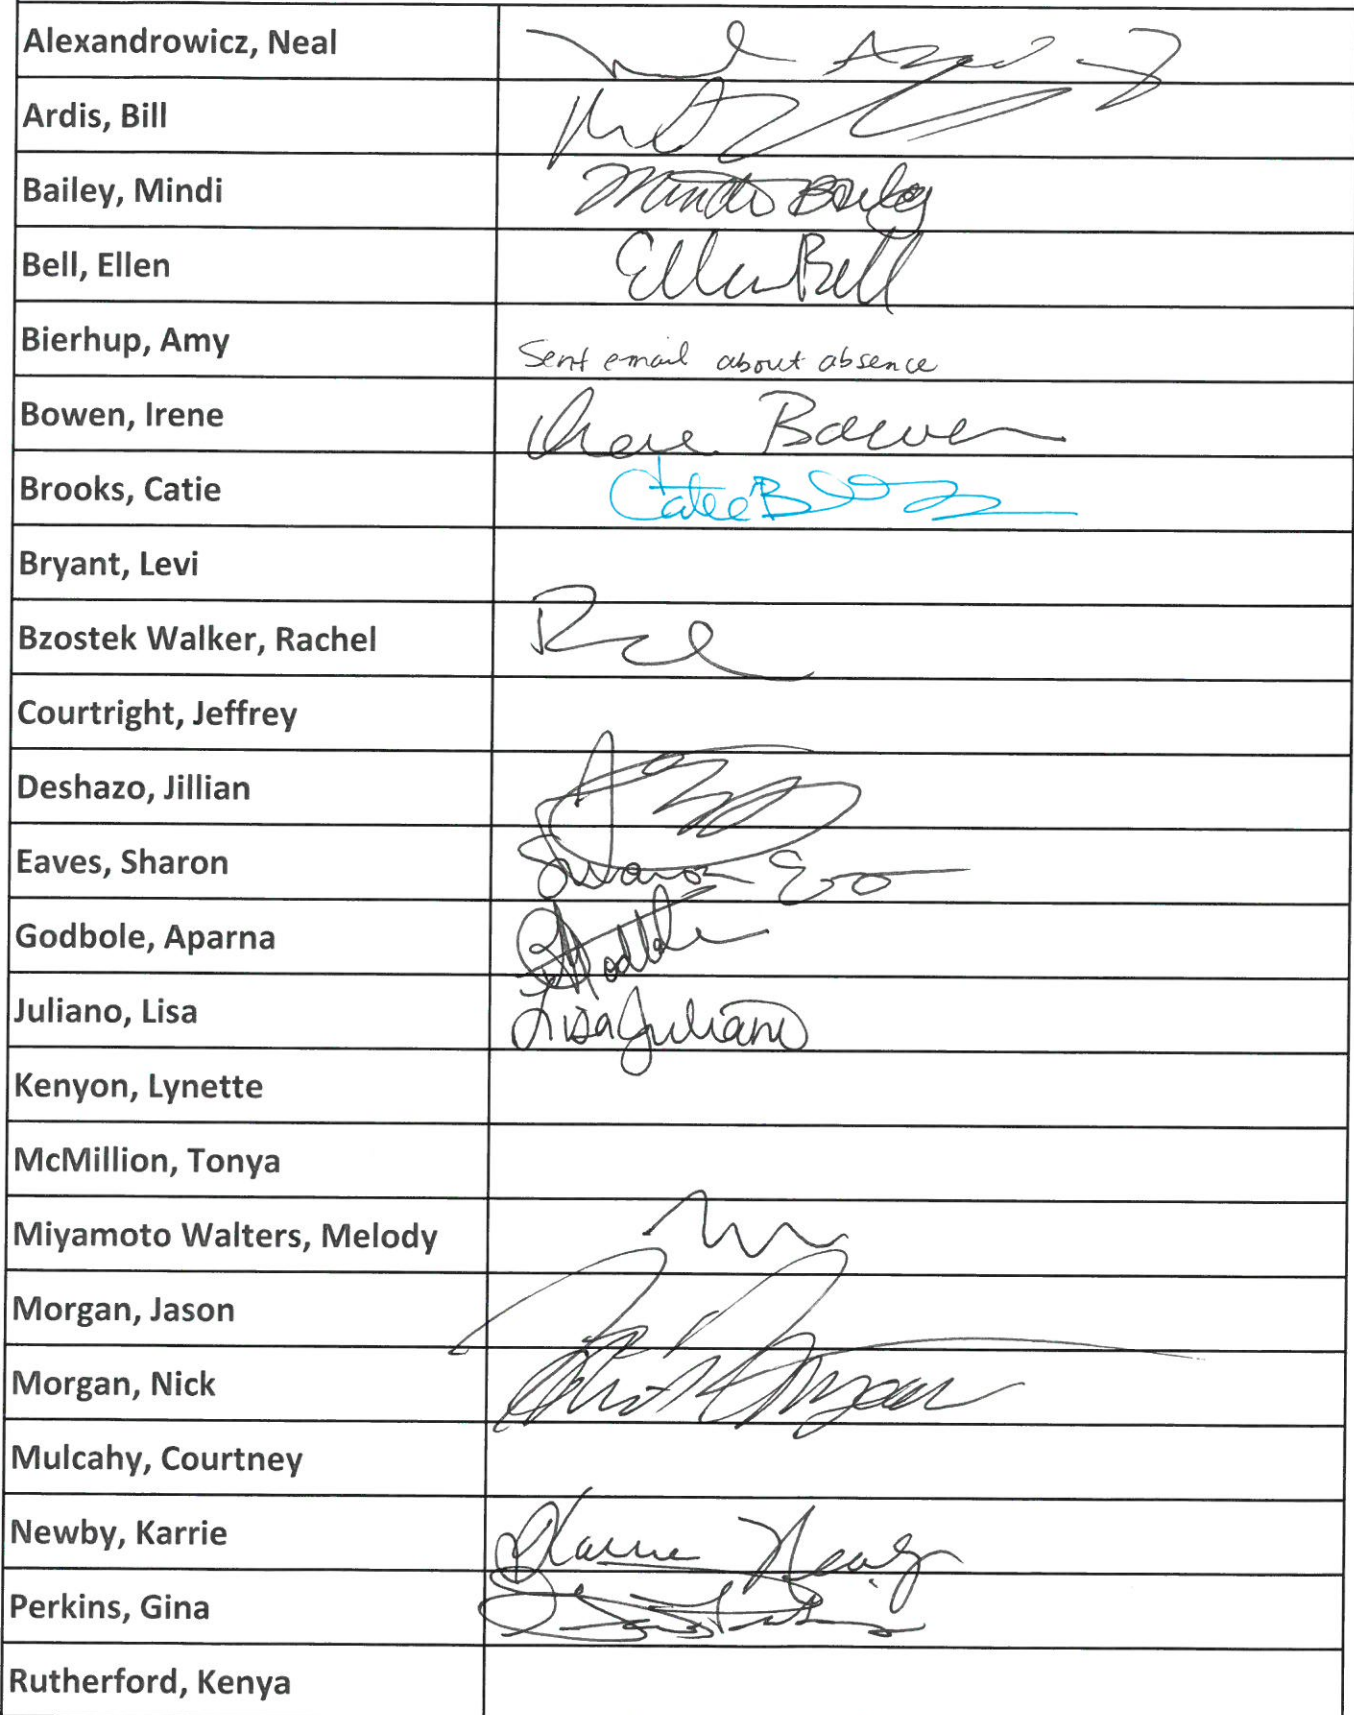 Alexandrowicz, Neal
Ardis, Bill
Bailey, Mindi Mindi Bailey
Bell, Ellen Ellen Bell
Bierhup, Amy Sent email about absence
Bowen, Irene Irene Bowen
Brooks, Catie Catie B
Bryant, Levi
Bzostek Walker, Rachel
Courtright, Jeffrey
Deshazo, Jillian
Eaves, Sharon Sharon
Godbole, Aparna
Juliano, Lisa Lisa Juliano
Kenyon, Lynette
McMillion, Tonya
Miyamoto Walters, Melody
Morgan, Jason
Morgan, Nick
Mulcahy, Courtney
Newby, Karrie Karrie
Perkins, Gina
Rutherford, Kenya